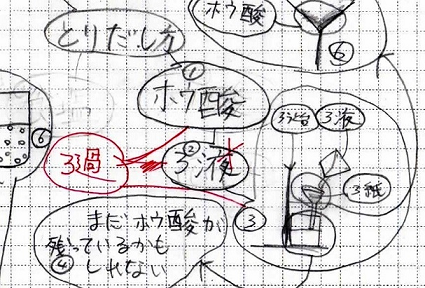 ホウ酸
⑥
とりだし方
①
ホウ酸
⑥
3過
②
3液
3台
3液
3紙
③
まだホウ酸が
残っているかも
④しれない